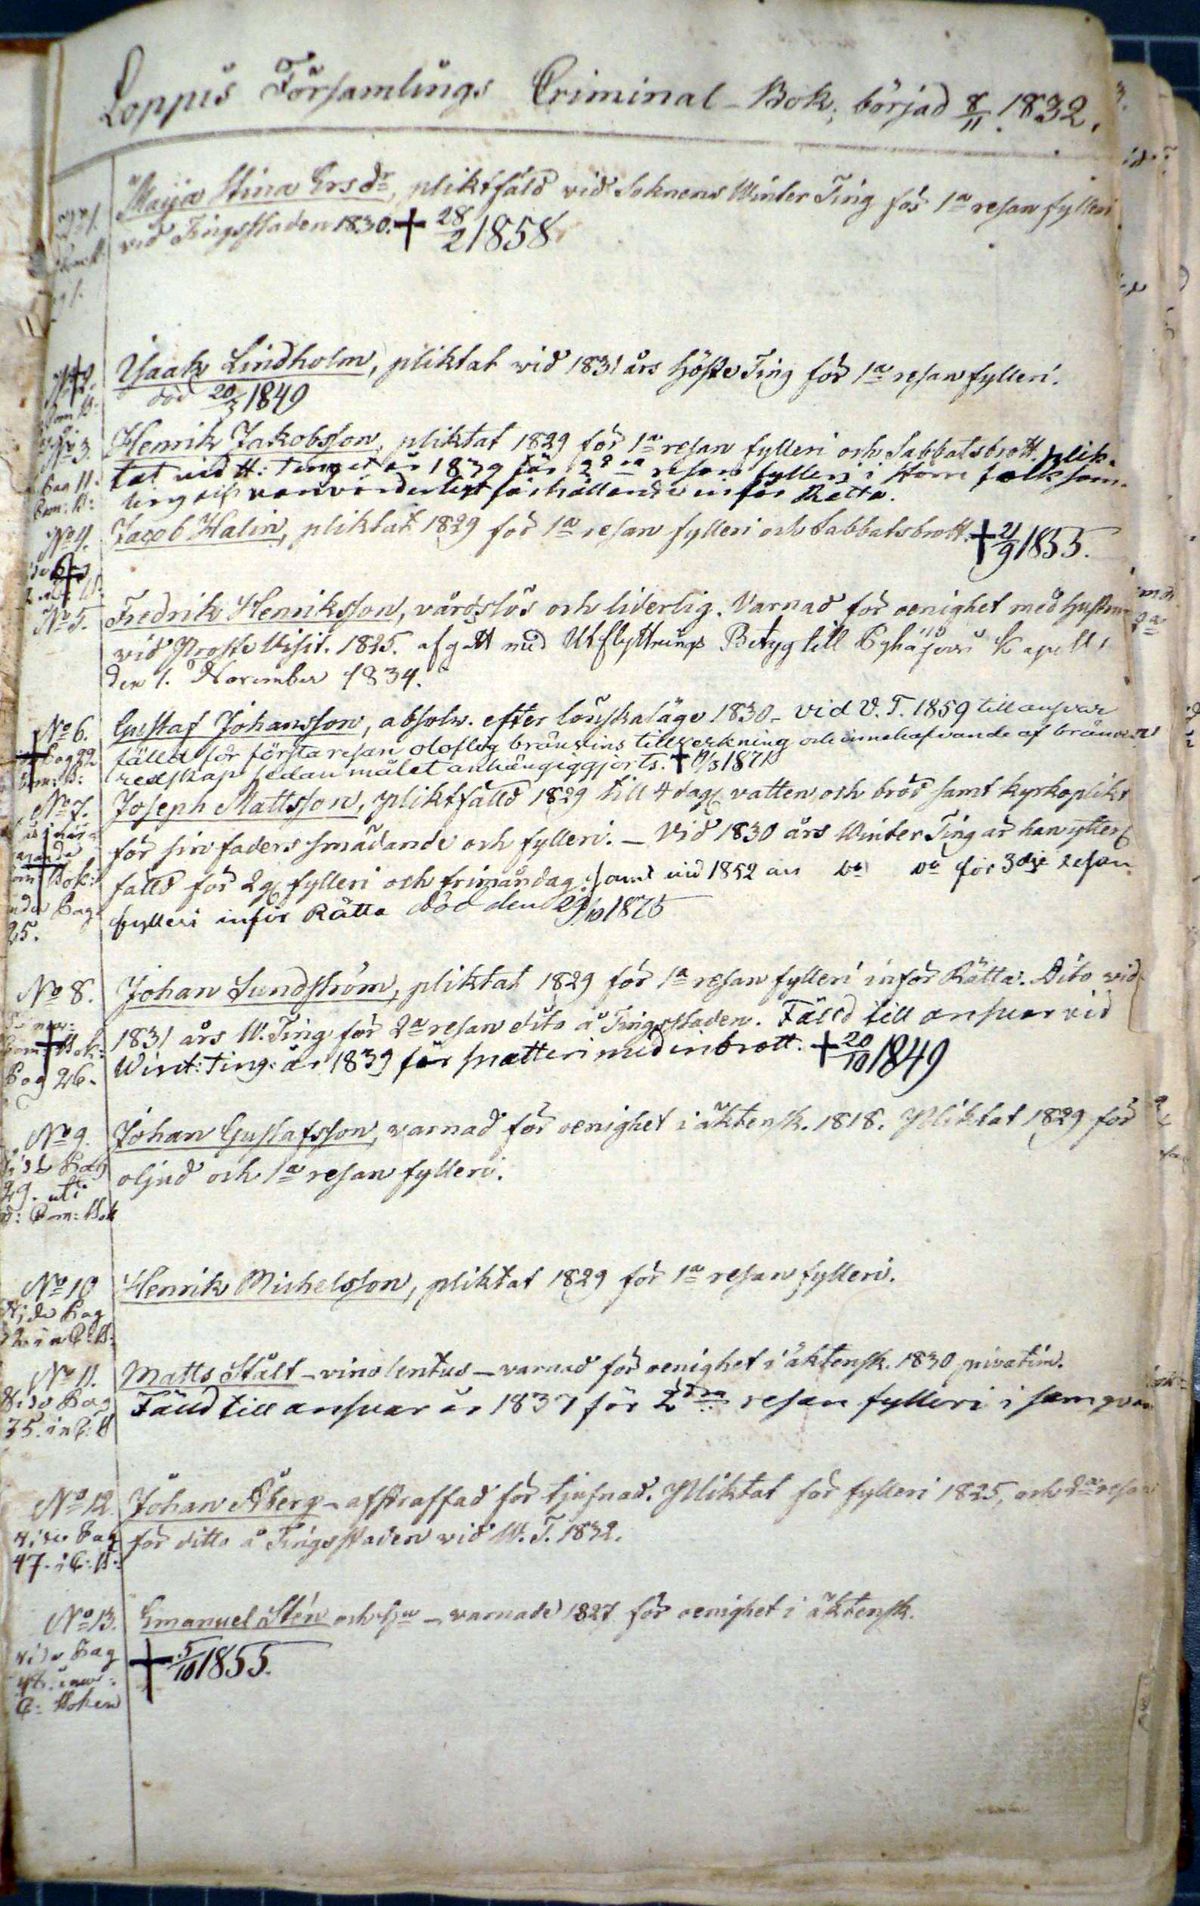 Loppis Församlings Criminal-Bok, börjad 8/11. 1832.
Maija Stina Ersdr, pliktfäld vid Soknens Winter Ting för 1a resan fylleri
vid Tingsstaden 1830. † 28/2 1858
Isaak Lindholm, pliktat vid 1831 års Höste Ting för 1a resan fylleri.
död 20/3 1849
No 3.
Henrik Jakobsson, pliktat 1829 för 1a resan fylleri och Sabbatsbrott. plik-
tat vid H: Tinget år 1839 för 2dra resan fylleri i större folksam-
ling och vanvördeligt förhållande inför Rätta.
Pag 11.
No 4.
Jacob Halin, pliktat 1829 för 1a resan fylleri och Sabbatsbrott. † 21/9 1855.
No 5.
Fredrik Henriksson, vårdslös och liderlig. Varnad för oenighet med hustrun
vid Proste Visit. 1825. afgått med Utflyttnings Betyg till Kapell
den 1. November 1834.
No 6.
Gustaf Johansson, absolv. efter lönskaläge 1830 - vid V. T. 1859 till ansvar
fälld för första resan oloflig bränvins tillverkning och innehafvande af bränvins
redskap sedan målet anhängiggjorts. † 1871
Pag 22
No 7.
Joseph Mattsson, pliktfälld 1829 till 4 dag. vatten och bröd samt kyrkoplikt
för sin faders smädande och fylleri. - Vid 1830 års Winter Ting är han ytterl.
fälld för 2g. fylleri och frimåndag, samt vid 1852 års do do för 3dje resan
fylleri inför Rätta död den 29/10 1875
Bok:
Pag.
25.
No 8.
Johan Sundström, pliktat 1829 för 1a resan fylleri inför Rätta. Dito vid
1831 års W. Ting för 2a resan dito å Tingsstaden. Fälld till ansvar vid
Wint: Ting: år 1839 för snatteri med inbrott. † 20/10 1849
Pag 26.
No 9.
Johan Gustafsson, varnad för oenighet i äktensk. 1818. Pliktat 1829 för
oljud och 1a resan fylleri.
Pag
29. uti
Com: Bok
No 10
Henrik Michelsson, pliktat 1829 för 1a resan fylleri.
Vide Pag
No 11.
Matts Stålt - vinolentus - varnad för oenighet i äktensk. 1830 privatim.
Fälld till ansvar år 1837 för 2dra resan fylleri i
Vide Pag
35. in C: B
No 12.
Johan Åberg - afstraffad för tjufnad. Pliktat för fylleri 1825, och 2a resan
för ditto å Tingsstaden vid W. T. 1832.
Vide Pag
47. i C: B:
No 13.
Emanuel Stén och Hu - varnade 1827 för oenighet i äktensk.
† 5/10 1855.
Vide Pag
C: Boken